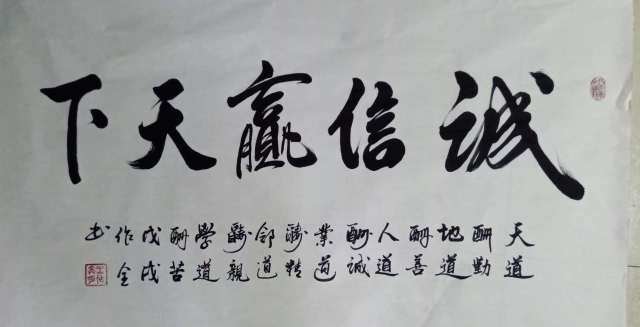 誠信贏天下
天道
酬勤
地道
酬善
人道
酬誠
業道
酬精
邻道
酬親
學道
酬苦
戊戌
作全
书